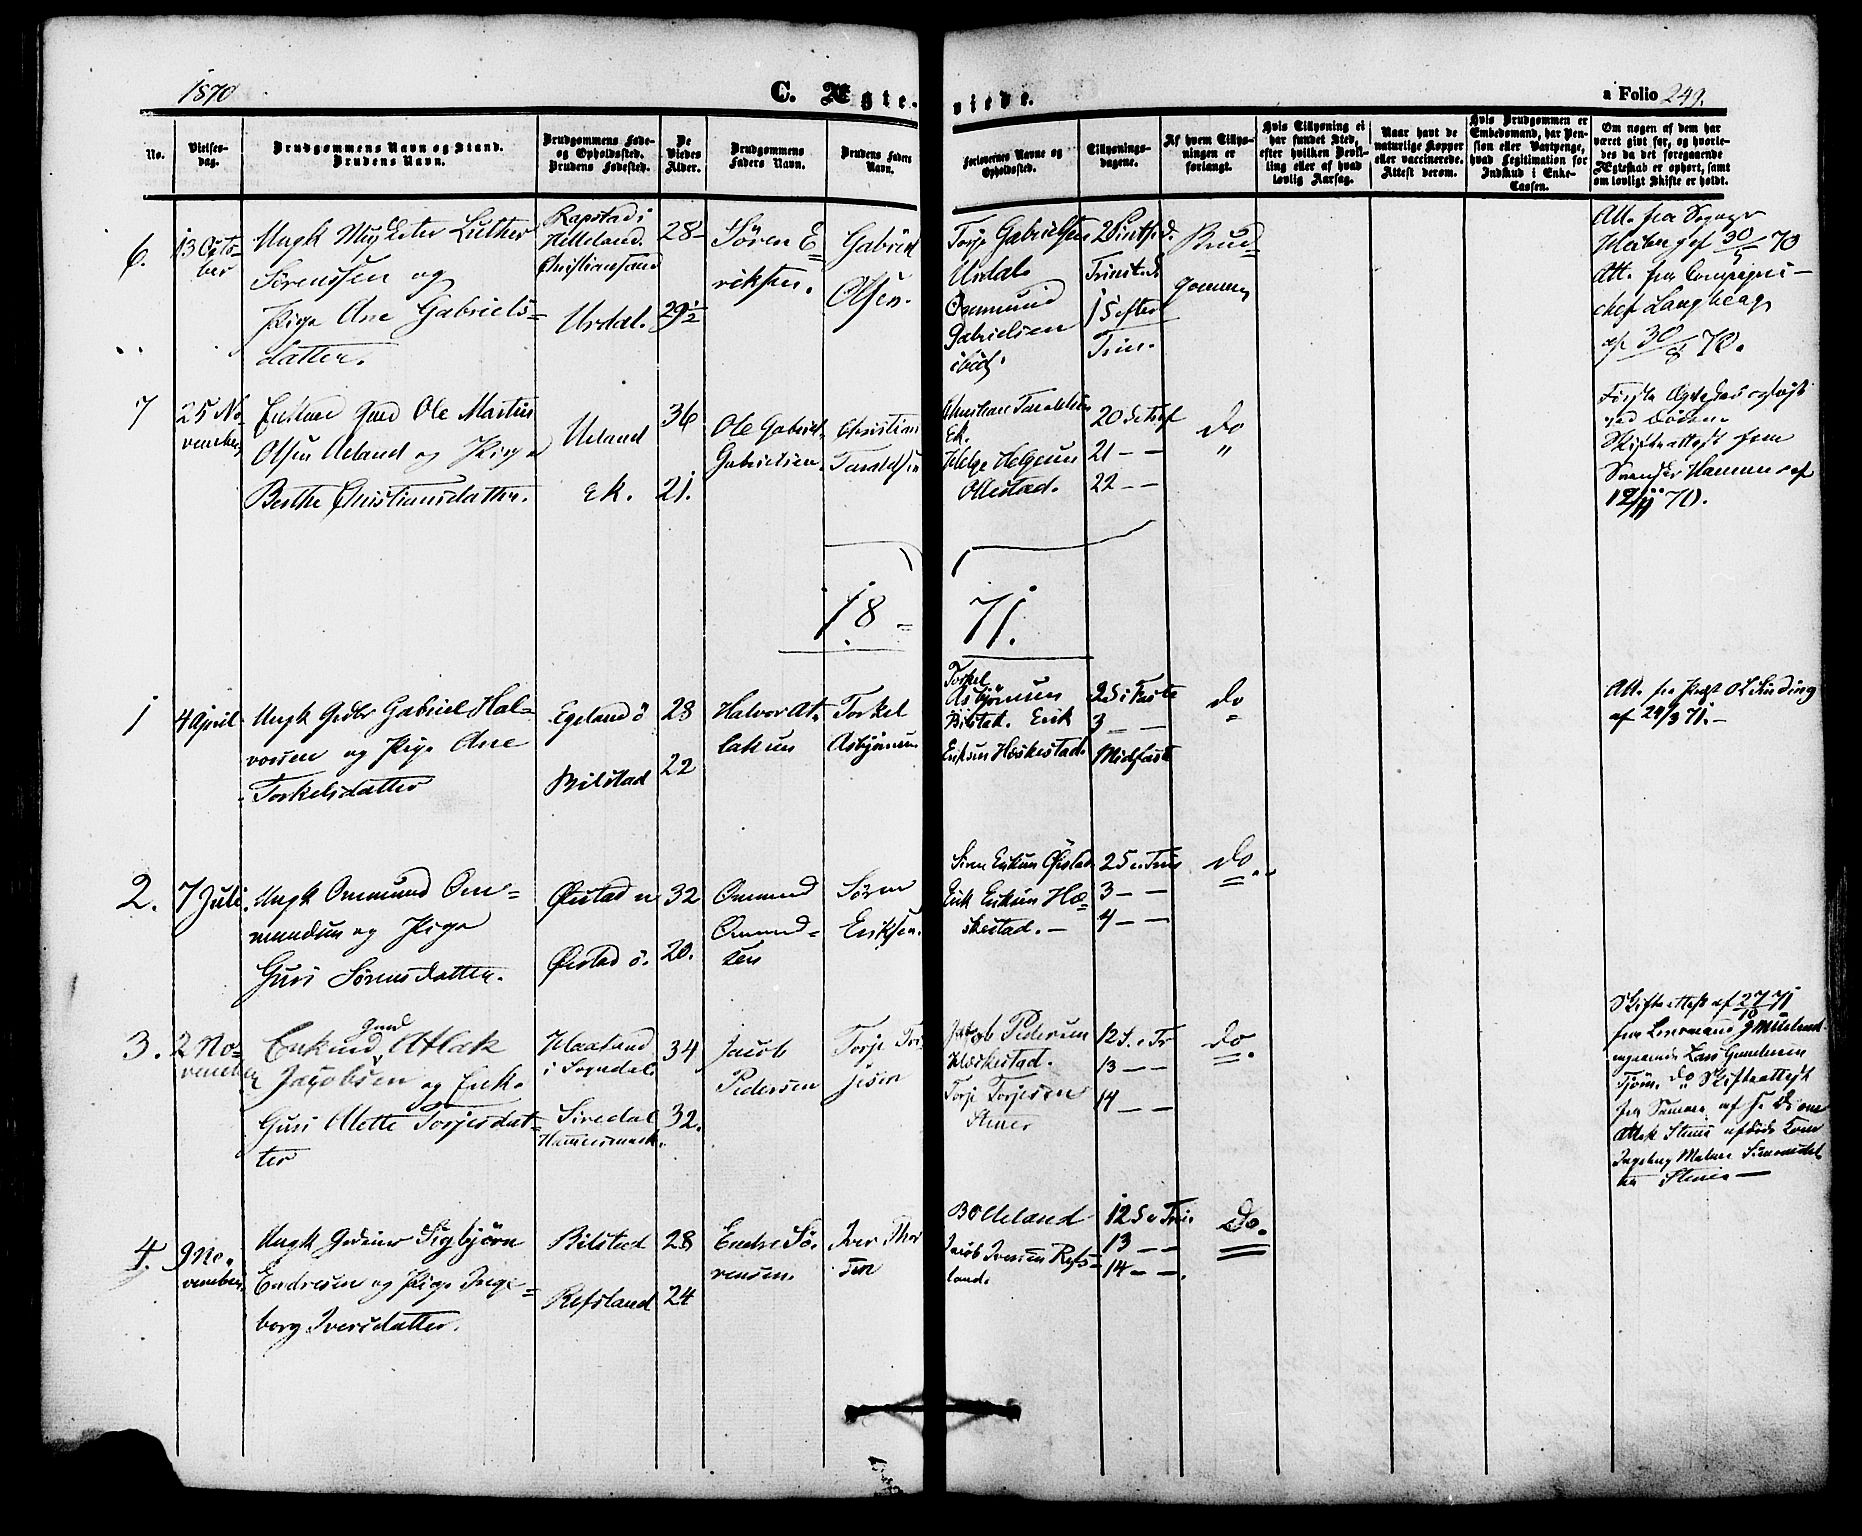 1870
C. Ægte- viede.
a Folio 249.
No.
Vielses-
dag.
Brudgommens Navn og Stand.
Brudens Navn.
Brudgommens Føde-
og Opholdssted.
Brudens Fødested.
De
Viedes
Alder.
Brudgommens
Faders Navn.
Brudens Faders
Navn.
Forlovernes Navne og
Opholdssted.
Tillysnings-
dagene.
Af hvem Tillys-
ningen er
forlangt.
Hvis Tillysning ei
har fundet Sted,
efter hvilken Bevil-
ling eller af hvad
lovlig Aarsag.
Naar havt de
naturlige Kopper
eller vaccinerede.
Attest derom.
Hvis Brudgommen er
Embedsmand, har Pen-
sion eller Vartpenge,
hvad Legitimation for
Indskud i Enke-
Cassen.
Om nogen af dem har
været gift før, og hvorle-
des da det foregaaende
Ægteskab er ophørt, samt
om lovligt Skifte er holdt.
6.
13 Octo-
ber
Ungk Peter Luther
Sørenssen og
Pige Ane Gabriels-
datter.
Rapstad i
Helleland.
Christiansand
Urdal.
28-
29½
Søren E
riksen.
Gabriel
Olsen.
Torje Gabrielsen
Urdal
Ommund
Gabrielsen
ibid.
Trinitatis
15 efter
Trin.
Brud-
gommen
Att. fra
af 30 70
Att. fra Compagni-
chef
af 30/8 70.
7
25 No
vember
Enkem Gmd Ole Martin
Olsen Ueland og Pige
Berthe Christiansdatter.
Ueland
Ek.
36
21.
Ole Gabriel
Gabrielsen.
Christian
Taraldsen
Christian Taraldsen
Ek.
Helge Helgesen
Ollestad.
20 S e
21 - -
22 - -
Do
"
Første
ved Døden
Skifteattest fra
af
12/11 70.
18-
71.
1
4 April
Ungk Gabriel Hal-
vorsen og Pige Ane
Torkelsdatter
Egeland ö
Bilstad
28
22
Halvor At-
laksen
Torkel
Asbjørnsen
Torkel
Asbjørnsen
Bilstad. Erik
Eriksen Hæskestad.
2 S i Faste
3 - -
Midfaste
do
"
Att. fra
af 24/3 71.-
2.
7 Juli
Ungk Ommund Om-
mundsen og Pige
Guri Sørensdatter.
Øistad n
Øistad ö.
32
20.
Ommund
Ommund-
sen
Søren
Eriksen.
Søren Eriksen Øistad
Erik Eriksen Hæ-
skestad. -
2 S e Trin
3 - -
4 - -
do.
3.
2 No-
vember
Enkem Gmd Atlak
Jacobsen og Enke
Guri Mette Torjesdat-
ter
Haaland
i Sogndal
Siredal
34
32.
Jacob
Pedersen
Torje Tor
jesen
Jakob Pedersen
Hæskestad.
Torje Torjesen
Steuer
12 S. e Tr
13 - -
14 - -
do.
Skifteattest af 27/10 71
fra Lensmand
Lars Gundersen
Tjörn. do Skifteattest
fra Samme af s. D.
Ingeborg Malene
4.
9 No-
vember
Ungk Sigbjørn
Endresen og Pige Inge-
borg Iversdatter.
Bilstad
Refsland
28
24
Endre Sø-
rensen.
Iver Thor
sen
B O Ueland
Jacob Iversen Refs-
land.
12 S e Trin
13 - -
14 - -.
Do.